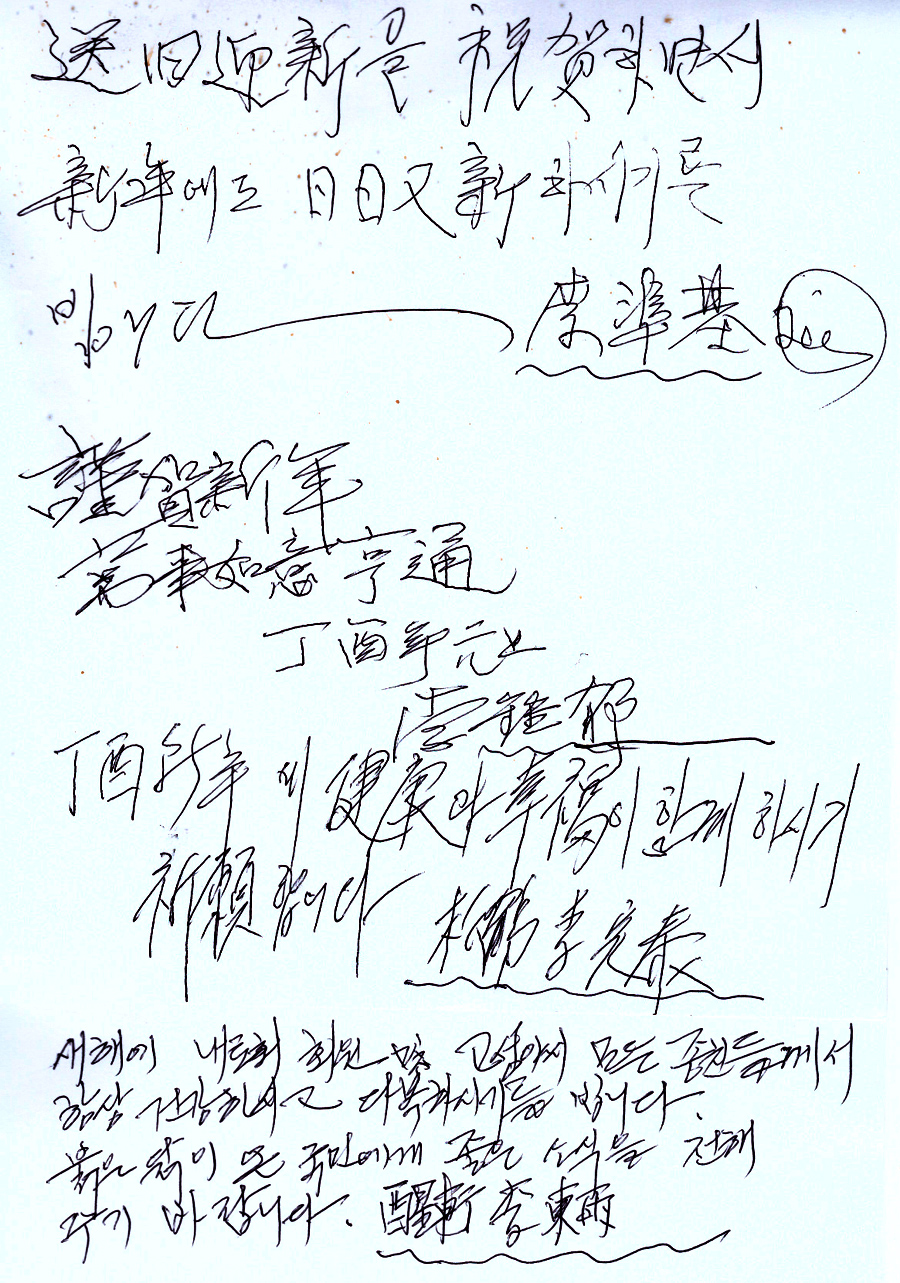 送旧迎新을 祝賀하면서
新年에도 日日又新 하시기를
빕니다 李準基
謹賀新年
萬事如意亨通
丁酉年元旦
李鍾郁
丁酉新年에 健康과 幸福이 함께 하시기
祈願합니다 李完泰
새해에 회원 및 고성이씨 모든 종친들께서
항상 건강하시고 다복하시기를 빕니다.
붉은 닭이 온 국민에게 좋은 소식을 전해
주기 바랍니다. 醒軒 李東雨